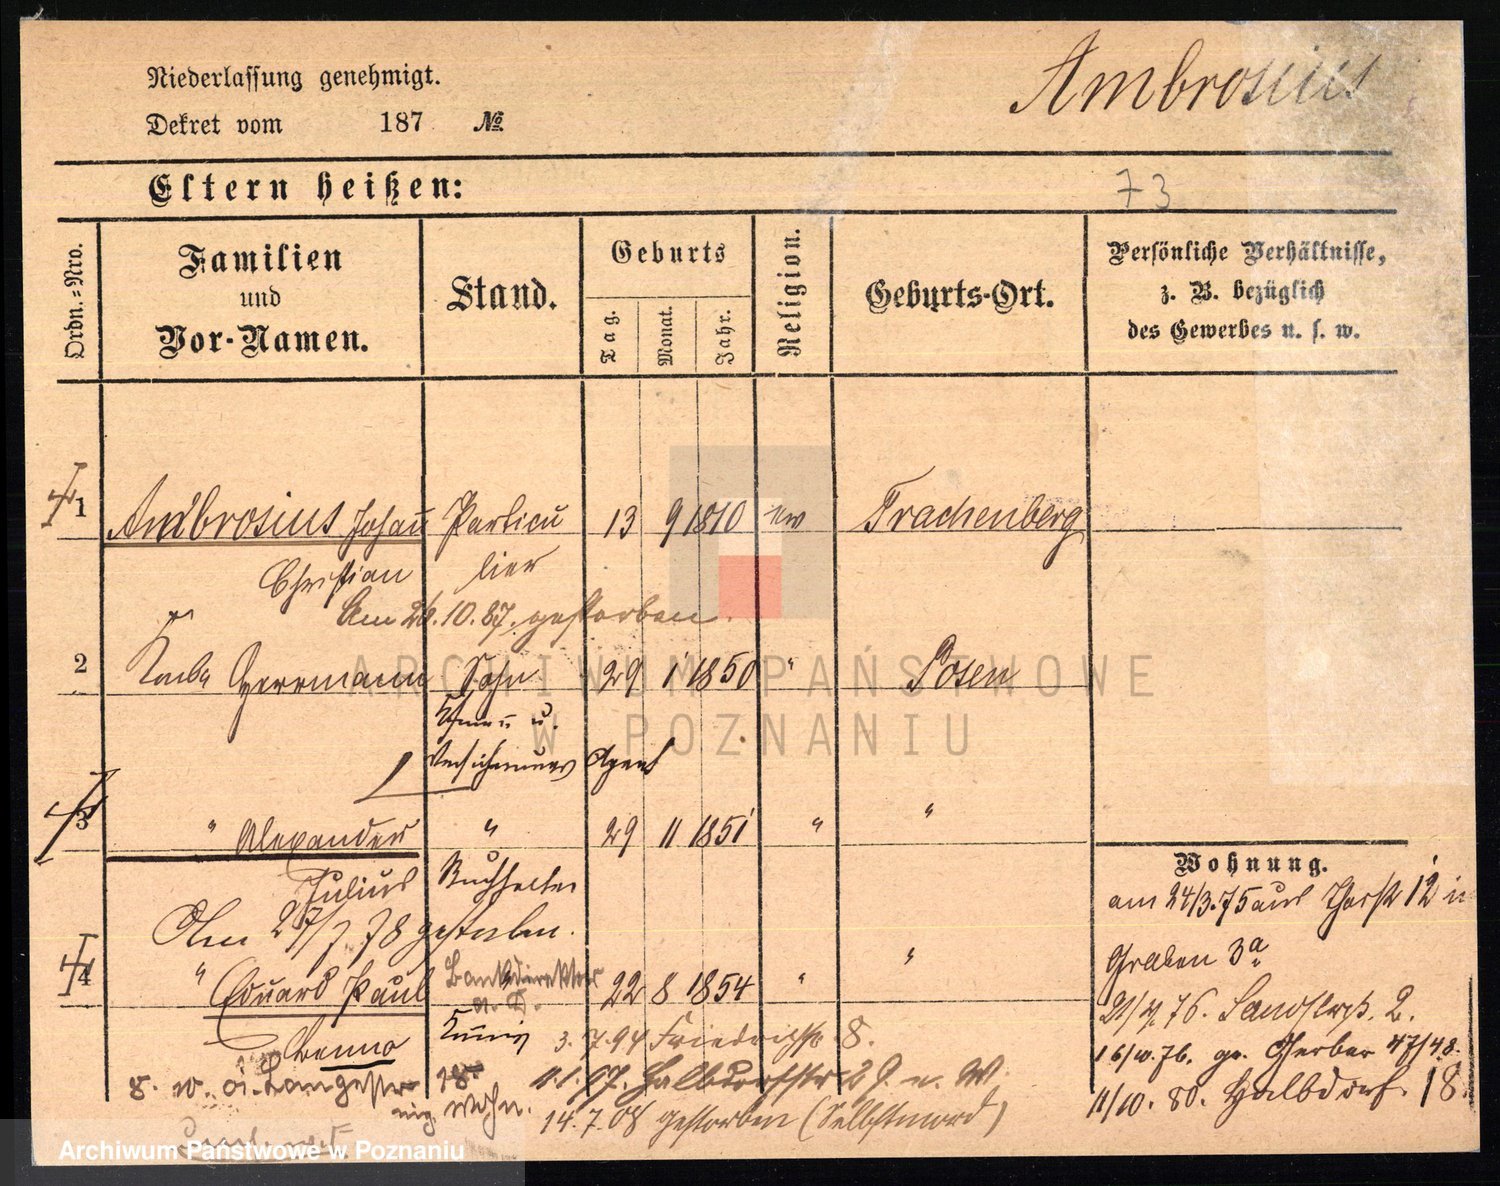 Niederlassung genehmigt.
Ambrosius
Dekret vom 187 №
Eltern heißen:
73
Ordn.-Nro.
Familien und Vor-Namen.
Stand.
Geburts
Tag.
Monat.
Jahr.
Religion.
Geburts-Ort.
Persönliche Verhältnisse, z. B. bezüglich des Gewerbes u. s. w.
1 Ambrosius Johan Particu 13 9 1810 ev Trachenberg
Christian lier
Am 26.10.87. gestorben.
2 Herrmann Sohn 29 1 1850 " Posen
u.
Versicherungs Agent
3 " Alexander " 29 11 1851 " "
Julius Buchhalter
Am 27/7 78 gestorben.
4 " Eduard Paul Bankdirektor 22 8 1854 " "
a. D.
Benno
3.7.94 Friedrichstr 8.
11.1.07. Halbdorfstr 29. n. W.
wohn.
14.7.08 gestorben (Selbstmord)
Wohnung.
am 24/3.75 aus 12 in
Graben 3a
76. Sandstr. 2.
16/10.76. gr. Gerber 47/48.
11/10. 80. Halbdorf. 18
ARCHIWUM PAŃSTWOWE
W POZNANIU
Archiwum Państwowe w Poznaniu